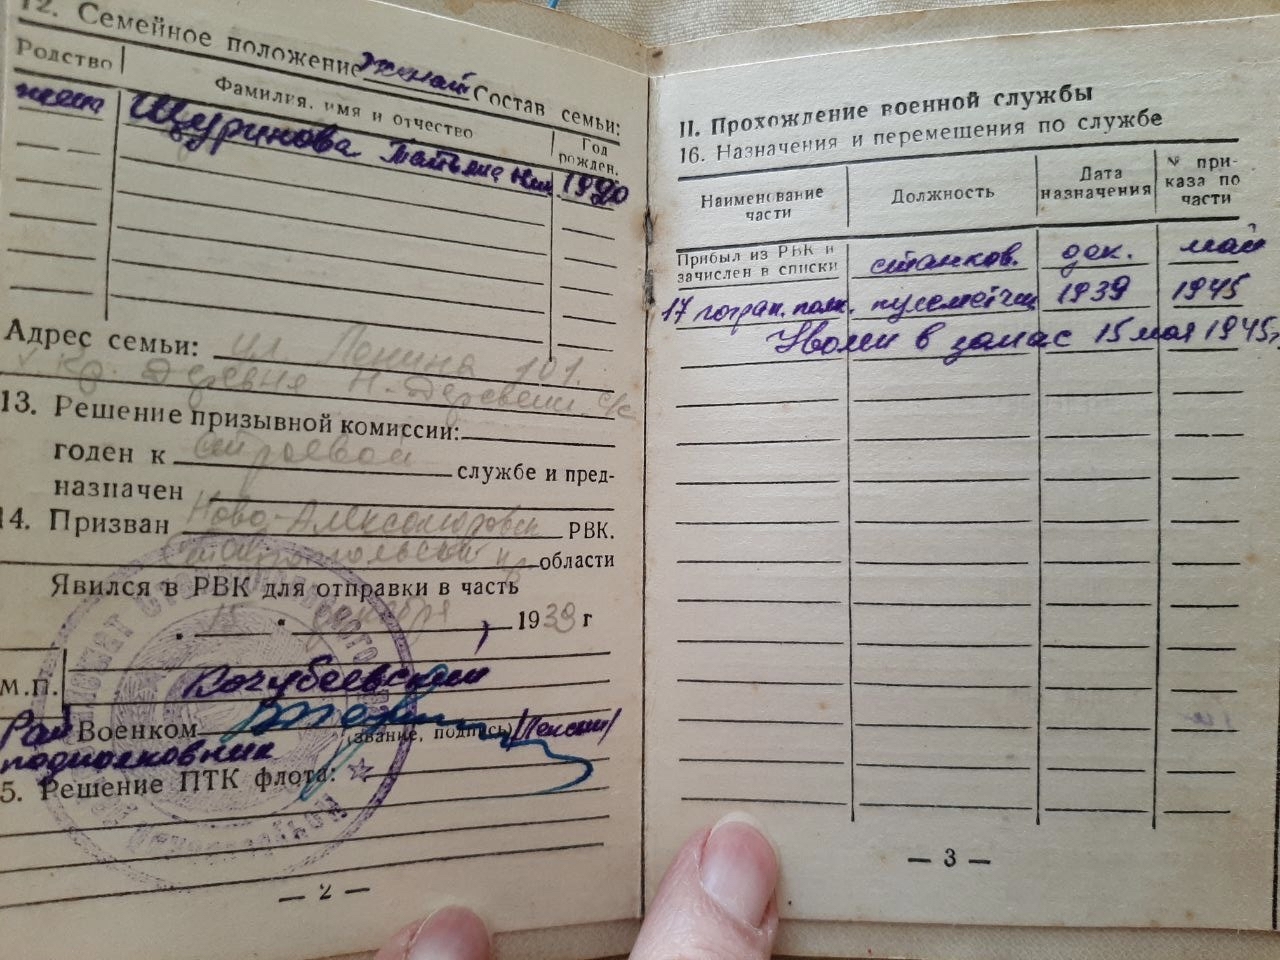 12. Семейное положение женат Состав семьи:
Родство
Фамилия, имя и отчество
Год рожден.
жена Щуринова Татьяна Ник. 1920
Адрес семьи: ул. Ленина 101.
Деревня
13. Решение призывной комиссии:
годен к строевой службе и пред-
назначен
14. Призван Ново-Александровск РВК.
области
Явился в РВК для отправки в часть
" 15 " декабря 1939 г
М.П.
Кочубеевский
Рай Военком
(звание, подпись)
подполковник
15. Решение ПТК флота:
— 2 —
II. Прохождение военной службы
16. Назначения и перемещения по службе
Наименование части
Должность
Дата назначения
№ при-каза по части
Прибыл из РВК и станков. дек. май
зачислен в списки
17 погран. полк. пулеметчик 1939 1945
Уволен в запас 15 мая 1945г
— 3 —